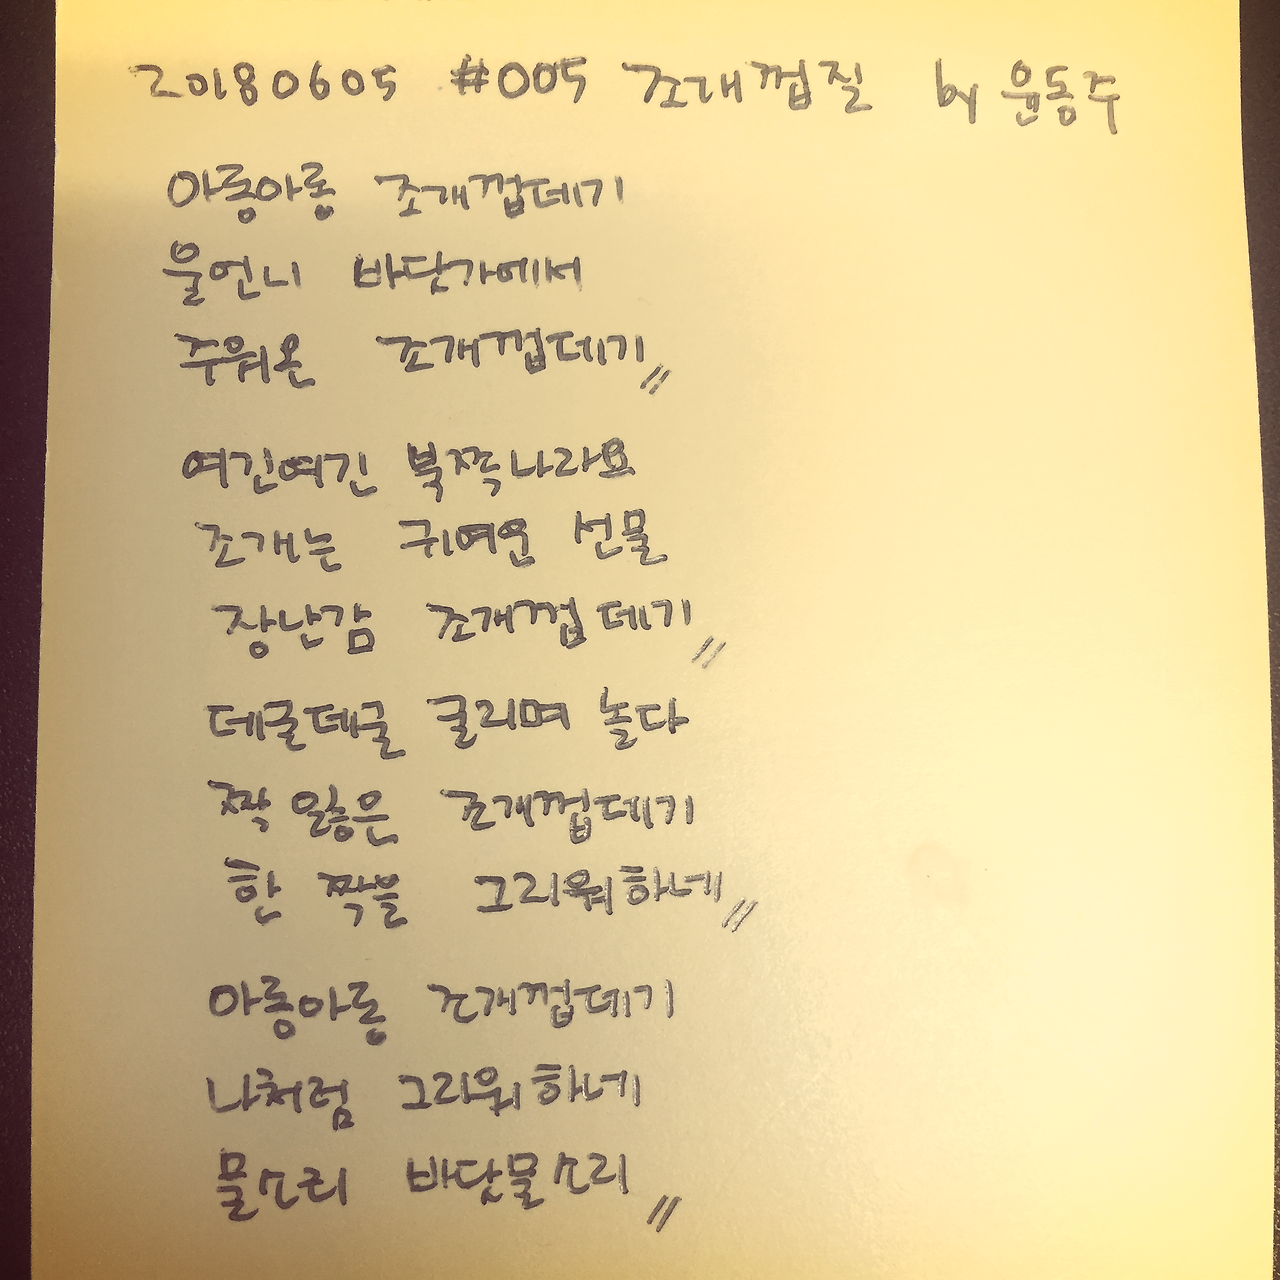 20180605 #005 조개껍질 by 윤동주
아롱아롱 조개껍데기
울언니 바닷가에서
주워온 조개껍데기〃
여긴여긴 북쪽나라요
조개는 귀여운 선물
장난감 조개껍데기〃
데굴데굴 굴리며 놀다
짝 잃은 조개껍데기
한 짝을 그리워하네〃
아롱아롱 조개껍데기
나처럼 그리워하네
물소리 바닷물소리〃